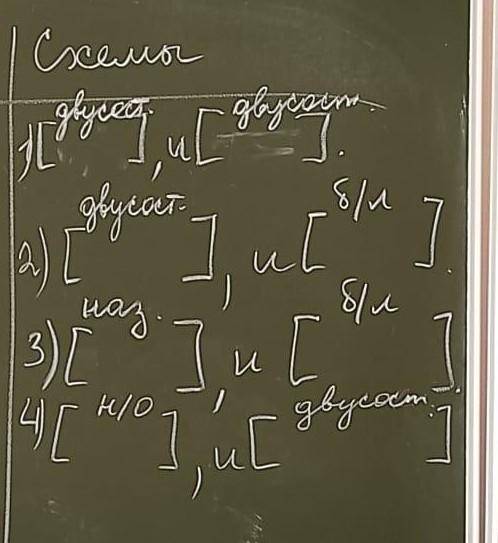 Схемы
двусост. двусост.
1) [ ], и [ ].
двусост. б/л
2) [ ], и [ ].
наз. б/л
3) [ ], и [ ].
н/о двусост.
4) [ ], и [ ]